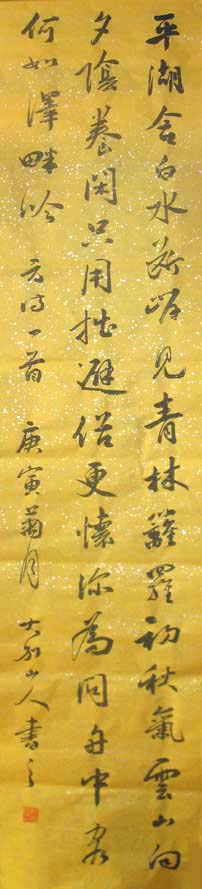 平湖含白水斷崕見青林籬羅初秋氣雲山向
夕陰養閑只用拙避俗更懷深為問舟中客
何如澤畔吟 方得一首 庚寅菊月 山人書之